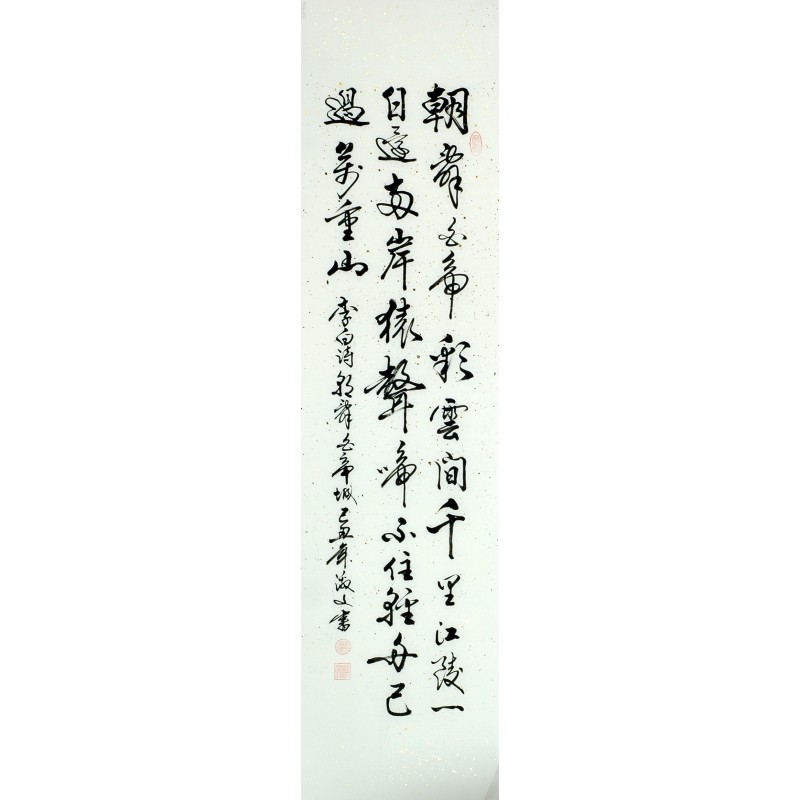 朝辞白帝彩雲間千里江陵一
日還兩岸猿聲啼不住輕舟已
過萬重山 李白诗朝辞白帝城己丑年文書